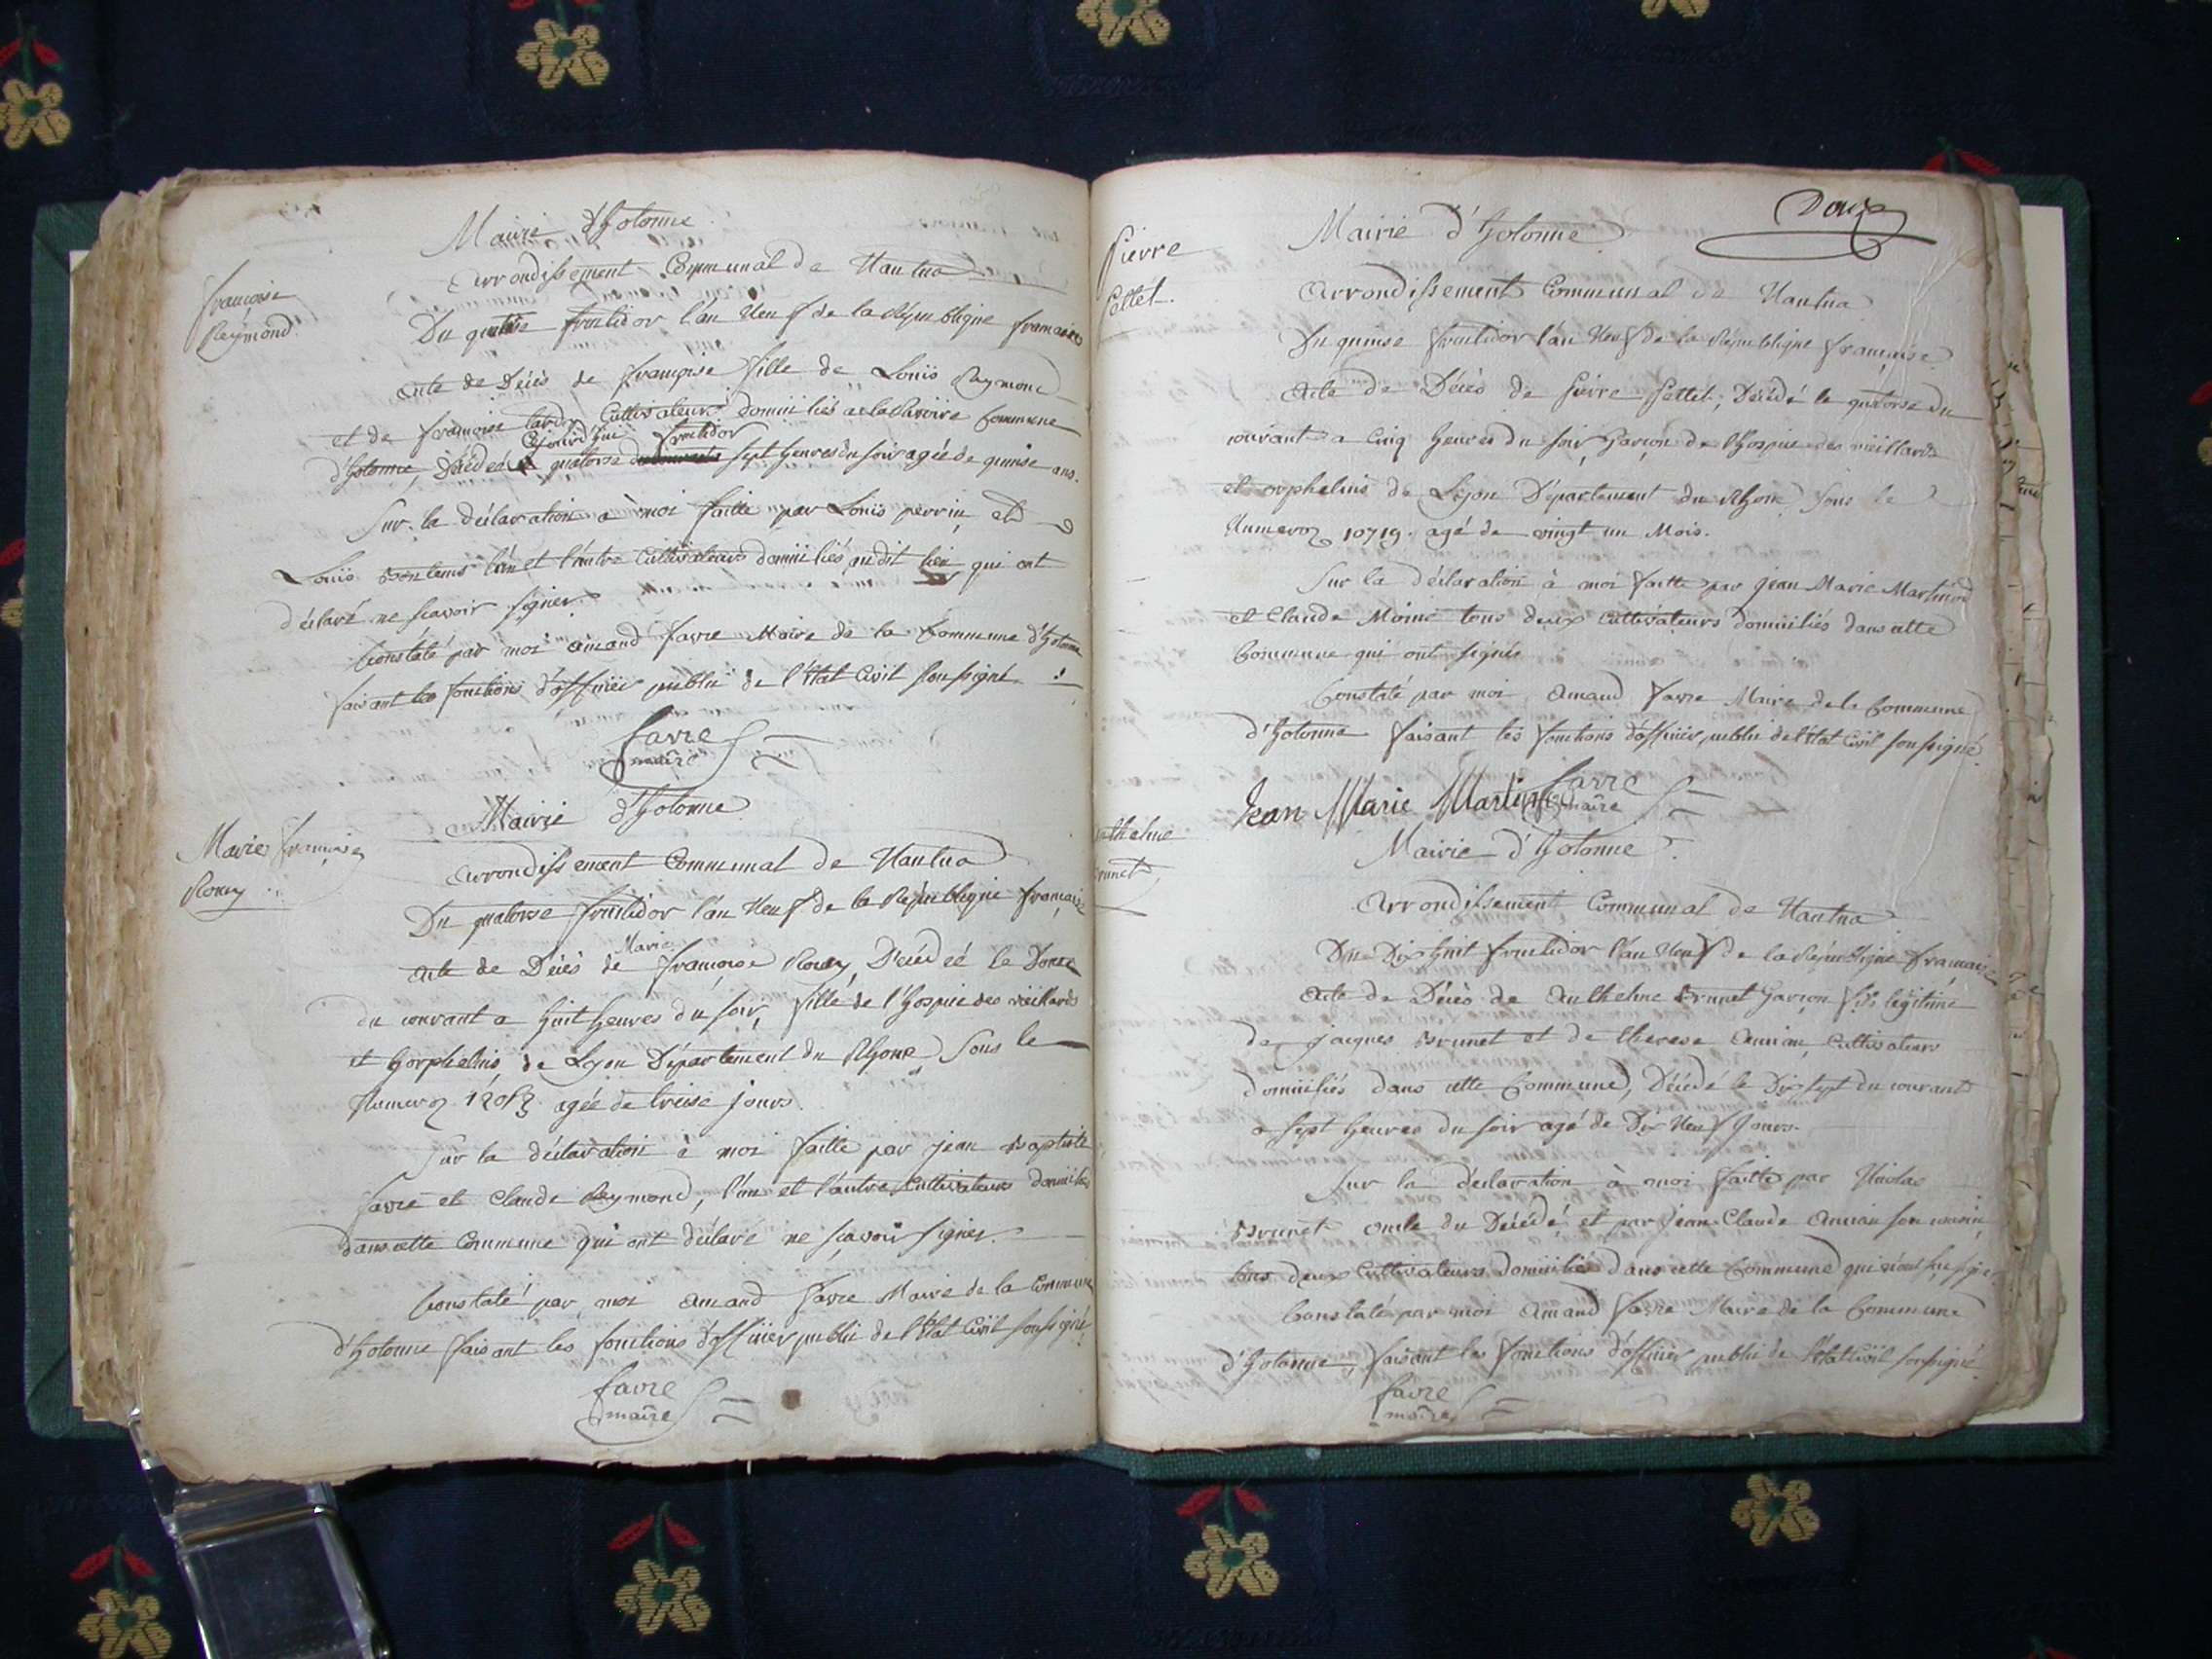 Mairie d'hotonne
françoise
Raymond.
arrondissement Communal de Nantua
Du quatorse fructidor l'an Neuf de la République francaise
acte de Décès de françoise fille de Louis Raymond
et de francoise Cultivateurs domiciliés a la commune
Cejourd'hui fructidor
d'hotonne, Décédée quatorse sept heures du soir agée de quinse ans.
Sur la déclaration à moi faitte par Louis perrin et
Louis l'un et l'autre Cultivateurs domiciliés audit lieu qui ont
déclaré ne scavoir signer.
Constaté par moi amand favre Maire de la Commune d'hotonne
faisant les fonctions d'officier public de l'état Civil soussigné
favre
maire
Mairie d'hotonne
Marie françoise
Romy
arrondissement Communal de Nantua
Du quatorse fructidor l'an Neuf de la République francaise
Marie
acte de Décès de francoise Romy, Décédée le Douze
du courant a huit heures du soir, fille de l'hospice des vieillards
et horphelins de Lyon Département du Rhone, sous le
Numero agée de treise jours.
Sur la déclaration à moi faitte par jean Baptiste
favre et Claude Reymond, l'un et l'autre Cultivateurs domiciliés
dans cette Commune qui ont déclaré ne scavoir signer.
Constaté par moi amand favre Maire de la Commune
d'hotonne faisant les fonctions d'officier public de l'état Civil soussigné
favre
maire
Pierre
Pettet.
Mairie d'hotonne
arrondissement Communal de Nantua
Du quinse fructidor l'an Neuf de la République francaise
acte de Décès de Pierre Pettet, Décédé le quatorse du
courant a Cinq heures du soir, Garcon de l'hospice des vieillards
et orphelins de Lyon Département du Rhone sous le
Numero 10719. agé de vingt un Mois.
Sur la déclaration à moi faitte par jean Marie Martinod
et Claude Moine tous deux cultivateurs domiciliés dans cette
Commune qui ont signés
Constaté par moi, amand favre Maire de la Commune
d'hotonne faisant les fonctions d'officier public de l'état Civil soussigné
Jean Marie Martinod favre
maire
Mairie d'hotonne
anthelme
Brunet
arrondissement Communal de Nantua
Du Dix huit fructidor l'an Neuf de la République francaise
acte de Décès de anthelme Brunet Garcon fils légitime
de jacques Brunet et de therese cultivateurs
domiciliés dans cette Commune, Décédé le Dix sept du courant
a sept heures du soir agé de Dix Neuf jours.
Sur la déclaration à moi faitte par Nicolas
Brunet oncle du Décédé et par jean Claude son cousin
tous deux cultivateurs domiciliés dans cette Commune qui n'ont
Constaté par moi amand favre Maire de la Commune
d'hotonne, faisant les fonctions d'officier public de l'état Civil soussigné
favre
maire